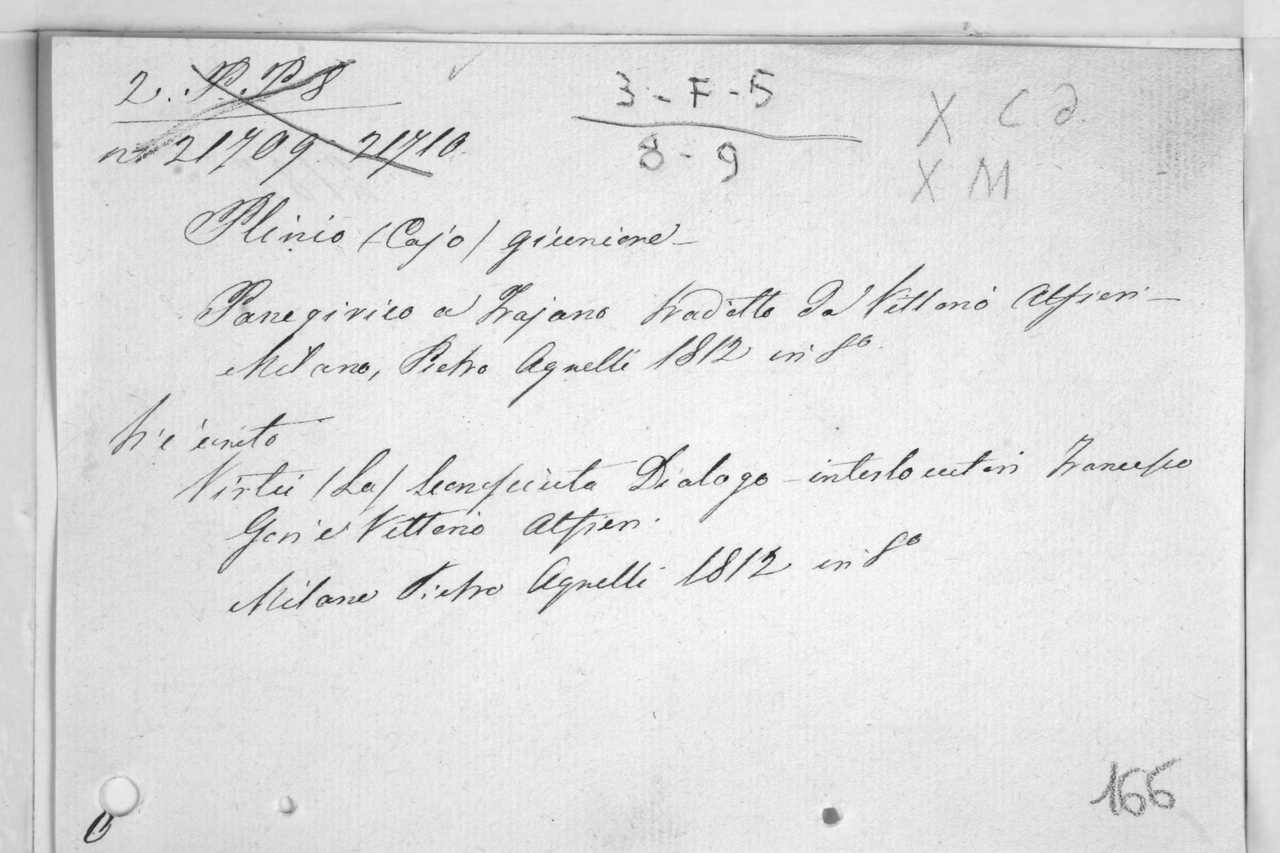 2. P. P. 8
n. 21709. 21710.
3 - F - 5
8 - 9
X C d.
X M
Plinio (Cajo) giuniore -
Panegirico a Trajano tradotto da Vittorio Alfieri -
Milano, Pietro Agnelli 1812 in 8º.
Vi è unito
Virtù (La) sconosciuta Dialogo - interlocutori Francesco
Gori e Vittorio Alfieri.
Milano Pietro Agnelli 1812 in 8º
166